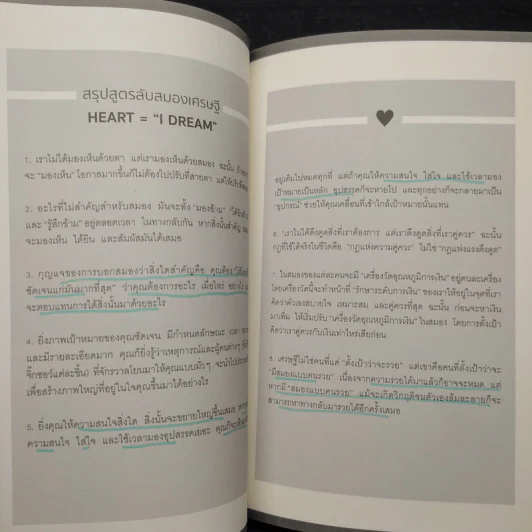 สรุปสูตรลับสมองเศรษฐี
HEART = “I DREAM”
1. เราไม่ได้มองเห็นด้วยตา แต่เรามองเห็นด้วยสมอง ฉะนั้น
จะ “มองเห็น” โอกาสมากขึ้นก็ไม่ต้องไปปรับที่สายตา แต่ให้ปรับที่
2. อะไรที่ไม่สำคัญสำหรับสมอง มันจะทั้ง “มองข้าม”
และ “รู้สึกข้าม” อยู่ตลอดเวลา ในทางกลับกัน หากสิ่งนั้นสำคัญ
จะมองเห็น ได้ยิน และสัมผัสมันได้เสมอ
3. กุญแจของการบอกสมองว่าสิ่งใดสำคัญคือ คุณต้อง
ชัดเจนแก่มันมากที่สุด” ว่าคุณต้องการอะไร เมื่อไหร่
จะตอบแทนการได้สิ่งนั้นมาด้วยอะไร
4. ยิ่งภาพเป้าหมายของคุณชัดเจน มีกำหนดลักษณะ เวลา
และมีรายละเอียดมาก คุณก็ยิ่งรู้ว่าเหตุการณ์และผู้คนต่างๆ
จิ๊กซอว์แต่ละชิ้น) ที่จักรวาลโยนมาให้คุณแบบมั่วๆ จะนำไป
เพื่อสร้างภาพใหญ่ที่อยู่ในใจคุณขึ้นมาได้อย่างไร
5. ยิ่งคุณให้ความสนใจสิ่งใด สิ่งนั้นจะขยายใหญ่ขึ้นเสมอ
ความสนใจ ใส่ใจ และใช้เวลามองอุปสรรคเยอะ
อยู่เต็มไปหมดทุกที่ แต่ถ้าคุณให้ความสนใจ ใส่ใจ และใช้เวลามอง
เป้าหมายเป็นหลัก อุปสรรคก็จะหายไป และทุกอย่างก็จะกลายมาเป็น
“อุปกรณ์” ช่วยให้คุณเคลื่อนที่เข้าใกล้เป้าหมายนั้นแทน
6. “เราไม่ได้ดึงดูดสิ่งที่เราต้องการ แต่เราดึงดูดสิ่งที่เราคู่ควร” ฉะนั้น
กฎที่ใช้ได้จริงในชีวิตคือ “กฎแห่งความคู่ควร” ไม่ใช่ “กฎแห่งแรงดึงดูด”
7. ในสมองของแต่ละคนจะมี “เครื่องวัดอุณหภูมิการเงิน” อยู่คนละเครื่อง
โดยเครื่องวัดนี้จะทำหน้าที่ “รักษาระดับการเงิน” ของเราให้อยู่ในจุดที่เรา
คิดว่าตัวเองสบายใจ เหมาะสม และคู่ควรที่สุด ฉะนั้น ก่อนจะหาเงิน
มาเพิ่ม ให้เริ่มปรับ “เครื่องวัดอุณหภูมิการเงิน” ในสมอง โดยการตั้งเป้า
คิดว่าเราคู่ควรกับเงินเท่าไหร่เสียก่อน
8. เศรษฐีไม่ใช่คนที่แค่ “ตั้งเป้าว่าจะรวย” แต่เขาคือคนที่ตั้งเป้าว่าจะ
“มีสมองแบบคนรวย” เนื่องจากความรวยได้มาแล้วก็อาจจะหมด แต่
หากมี “สมองแบบคนรวย” แม้จะเกิดวิกฤติจนตัวเองล้มละลายก็จะ
สามารถหาทางกลับมารวยได้อีกครั้งเสมอ